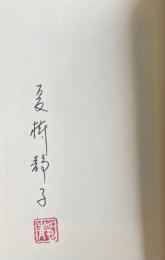 夏樹静子